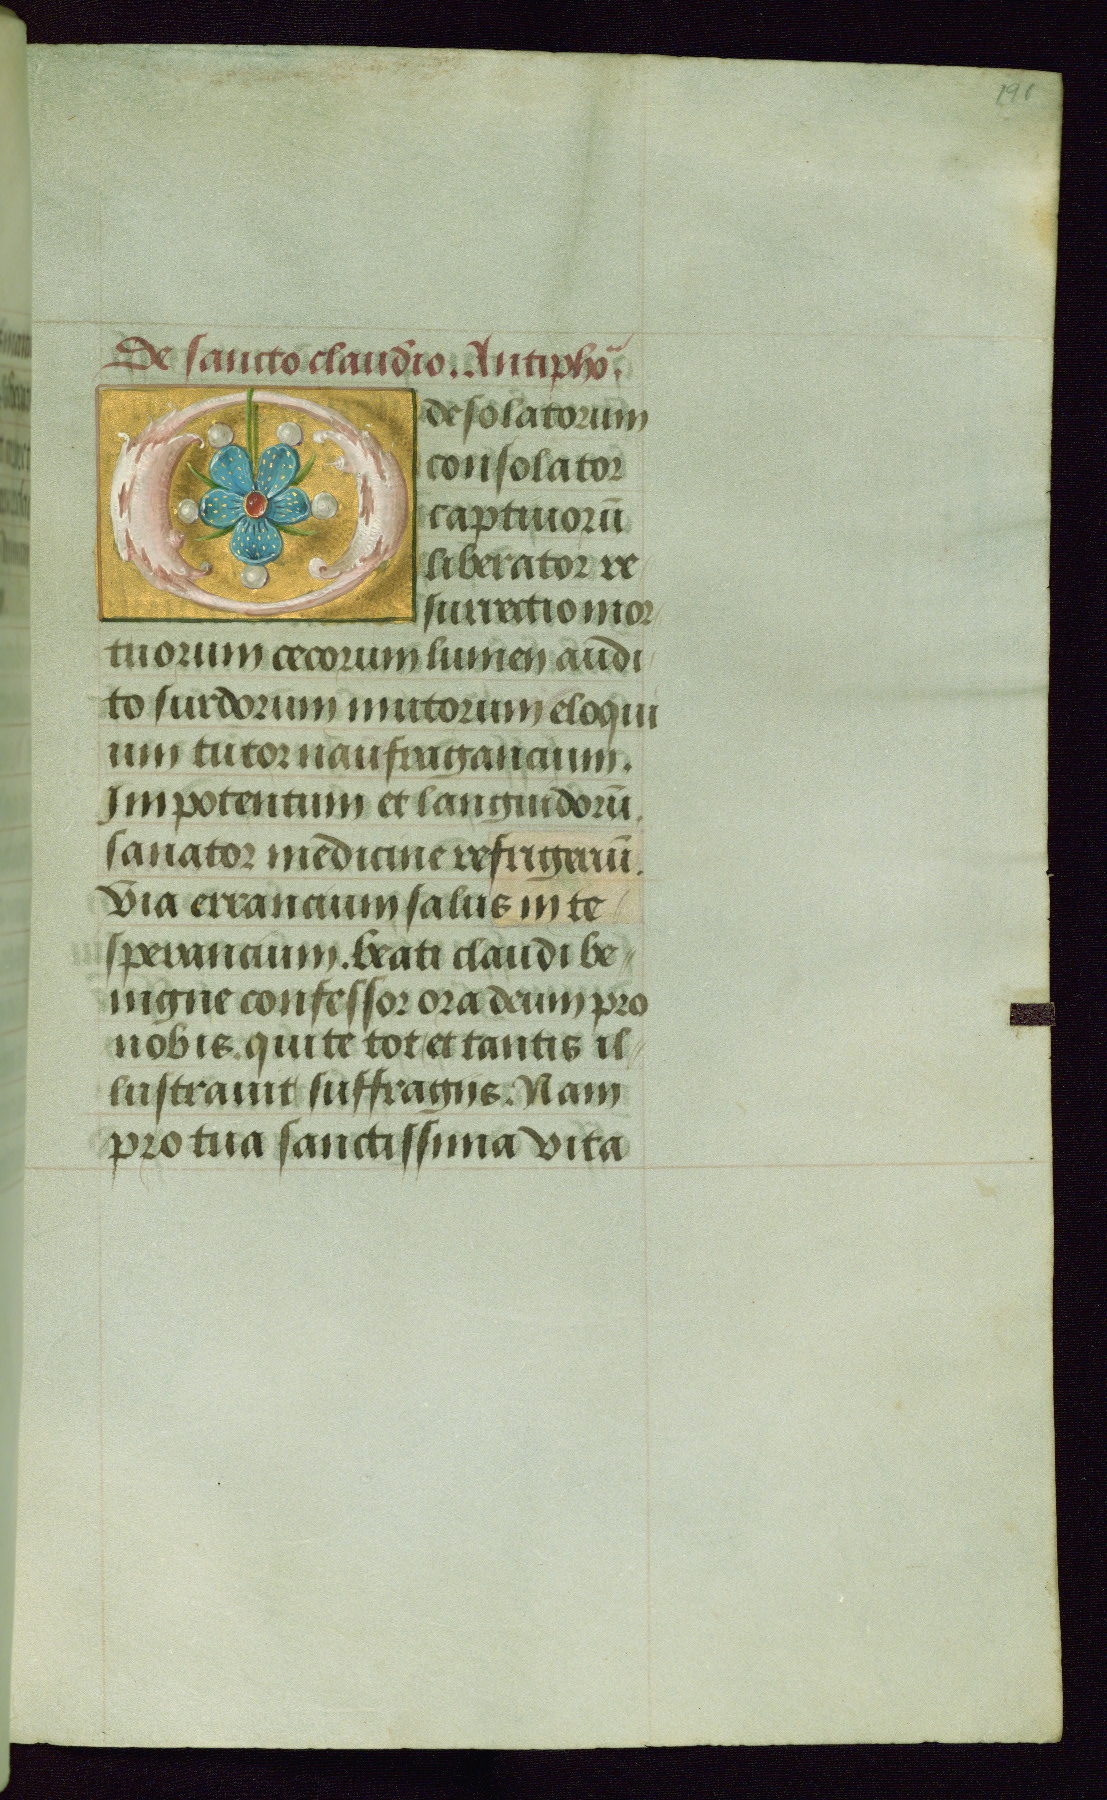 191
De sancto claudio. Antipho¯.
O desolatorum
consolator
captiuorū
liberator re
surrectio mor
tuorum cecorum lumen audi
to surdorum mutorum eloqui
um tutor naufragancium.
Impotentum et languidorū.
sanator medicine refrigeriū.
Via errancium salus in te
sperancium. beati claudi be
nigne confessor ora deum pro
nobis. qui te tot et tantis il
lustrauit suffragiis. Nam
pro tua sanctissima vita